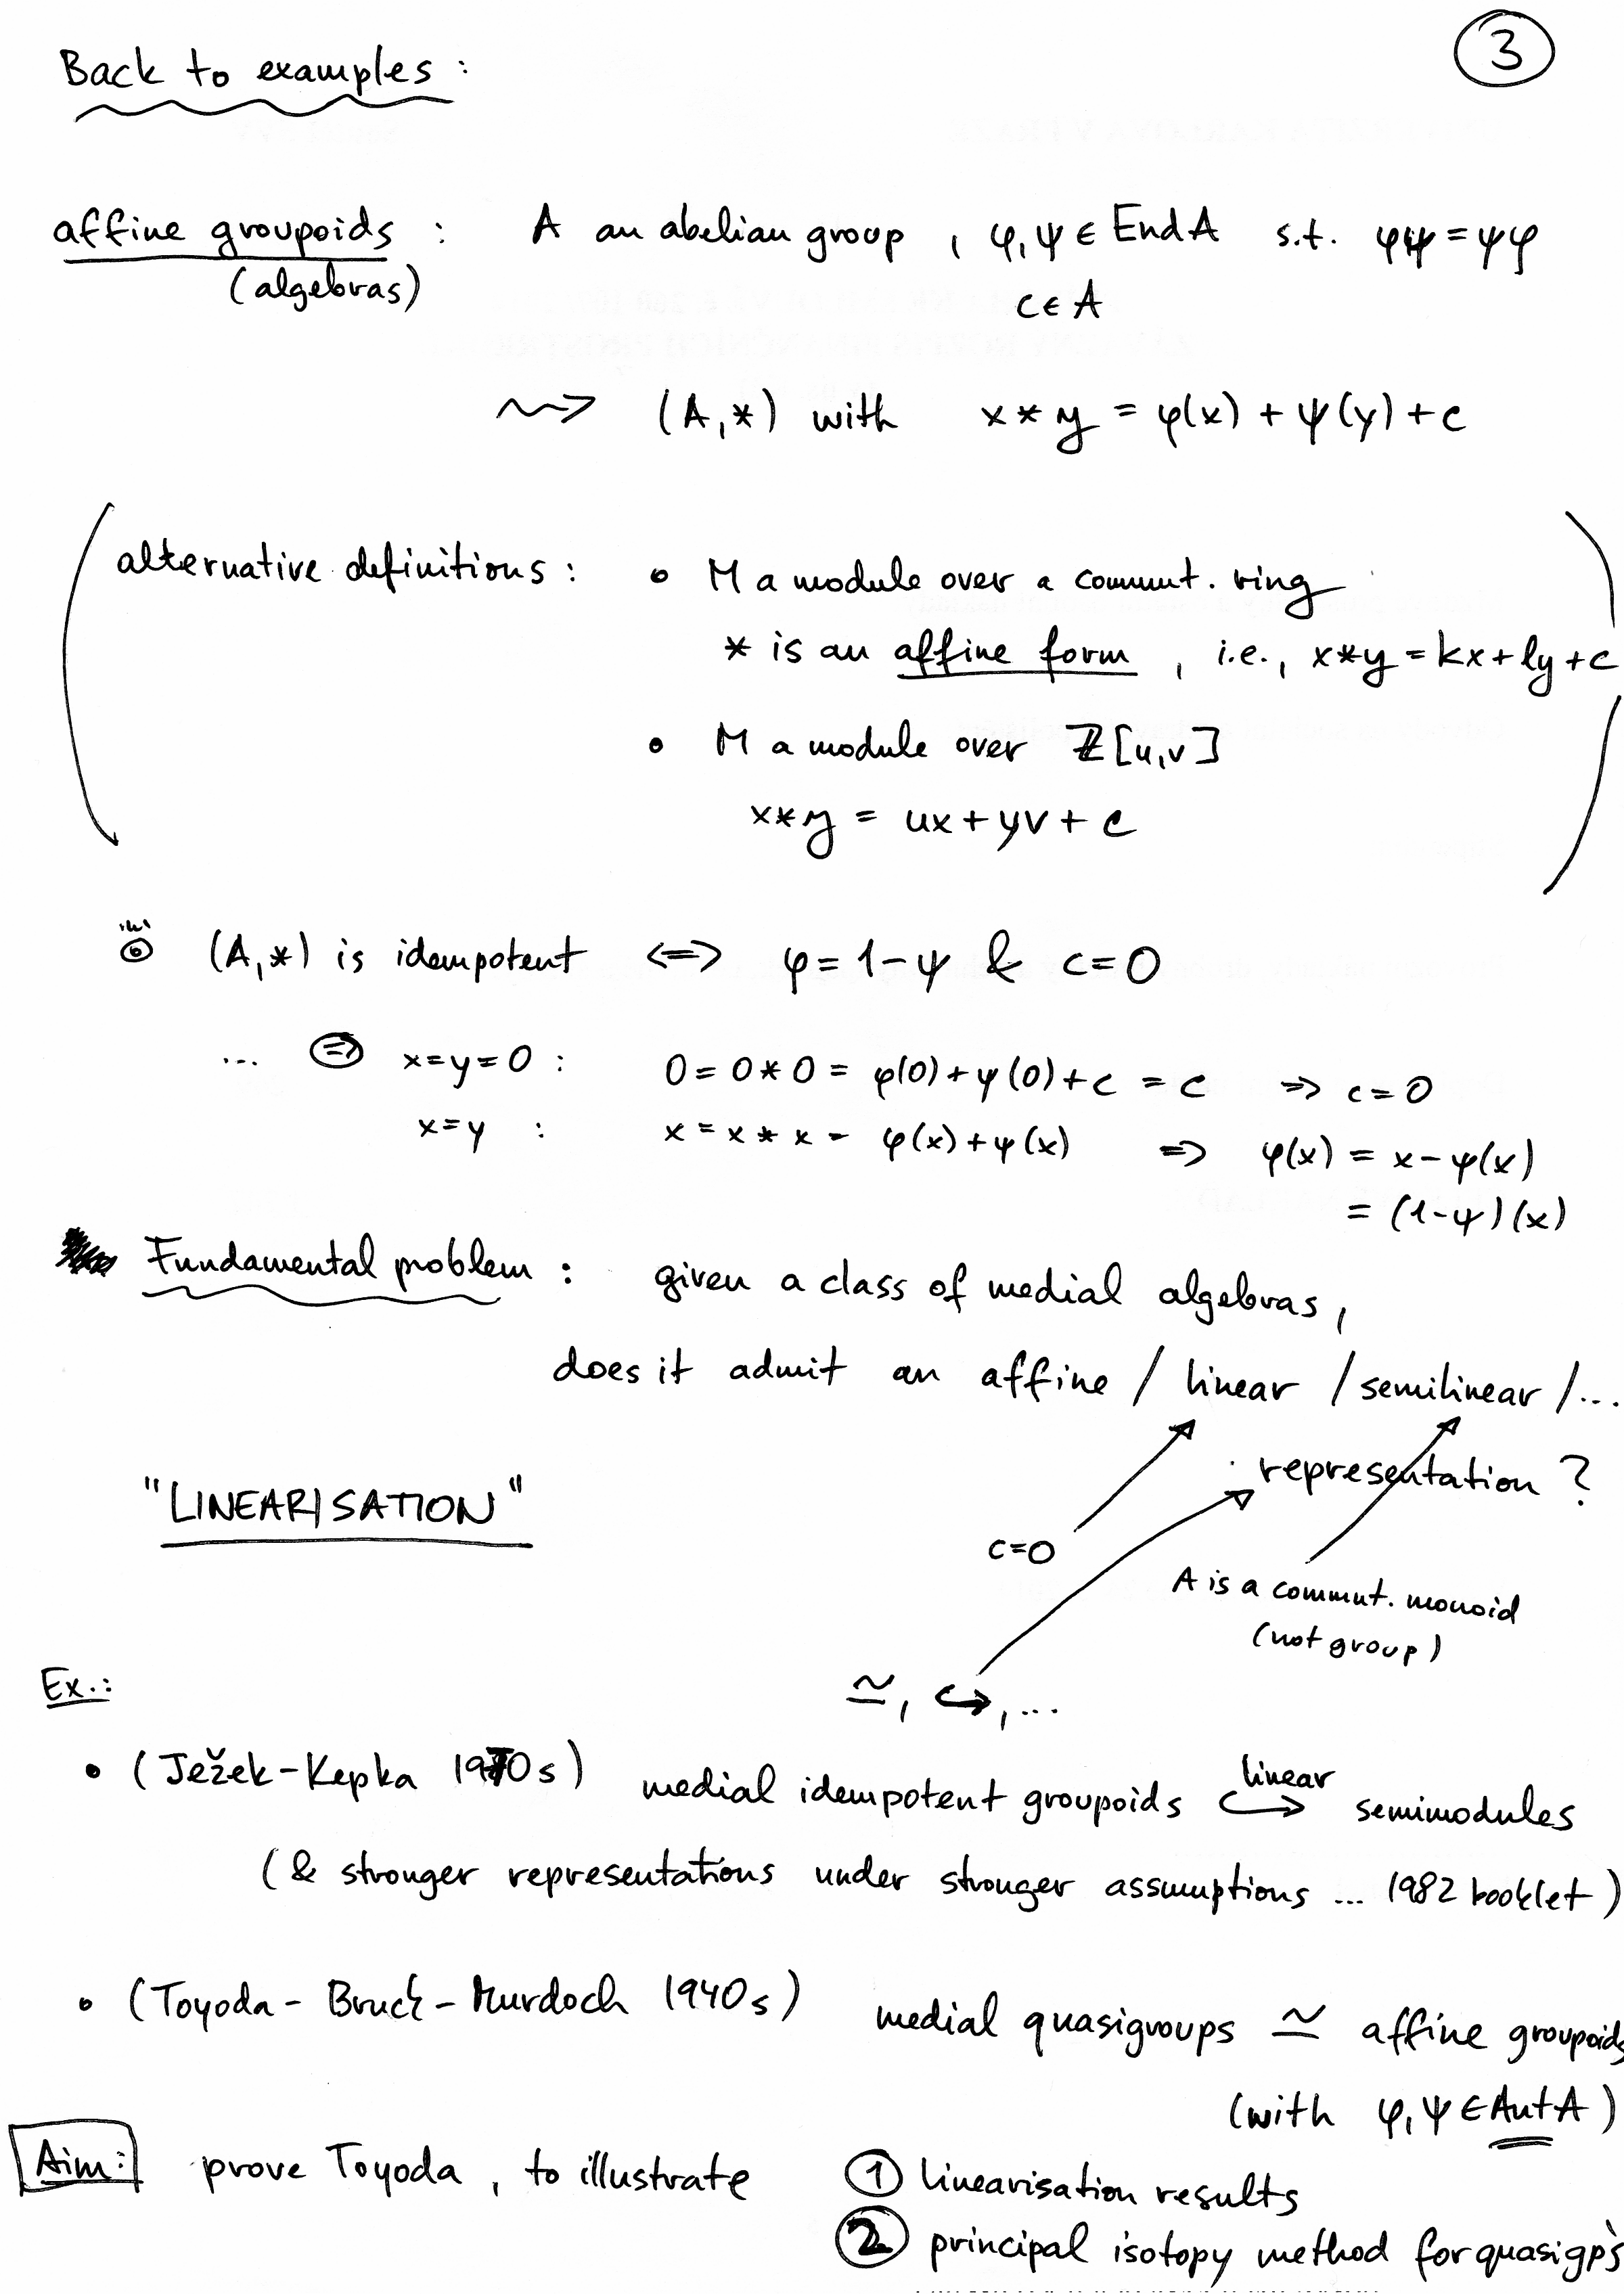 3
Back to examples :
affine groupoids : A an abelian group , φ,ψ ∈ End A s.t. φψ = ψφ
(algebras) c ∈ A
⇝ (A,*) with x * y = φ(x) + ψ(y) + c
alternative definitions : • M a module over a commut. ring
* is an affine form , i.e., x*y = kx + ly + c
• M a module over ℤ[u,v]
x*y = ux + yv + c
(A,*) is idempotent <=> φ = 1-ψ & c=0
... => x=y=0 : 0 = 0 * 0 = φ(0) + ψ(0) + c = c => c = 0
x=y : x = x * x = φ(x) + ψ(x) => φ(x) = x - ψ(x)
= (1-ψ)(x)
Fundamental problem : given a class of medial algebras ,
does it admit an affine / linear / semilinear / ...
representation ?
"LINEARISATION"
c=0
A is a commut. monoid
(not group)
Ex.: ≃, ↪, ...
• (Ježek-Kepka 1970s) medial idempotent groupoids ↪ linear semimodules
(& stronger representations under stronger assumptions ... 1982 booklet)
• (Toyoda - Bruck - Murdoch 1940s) medial quasigroups ≃ affine groupoids
(with φ,ψ ∈ Aut A)
Aim: prove Toyoda , to illustrate ① linearisation results
② principal isotopy method for quasigp's